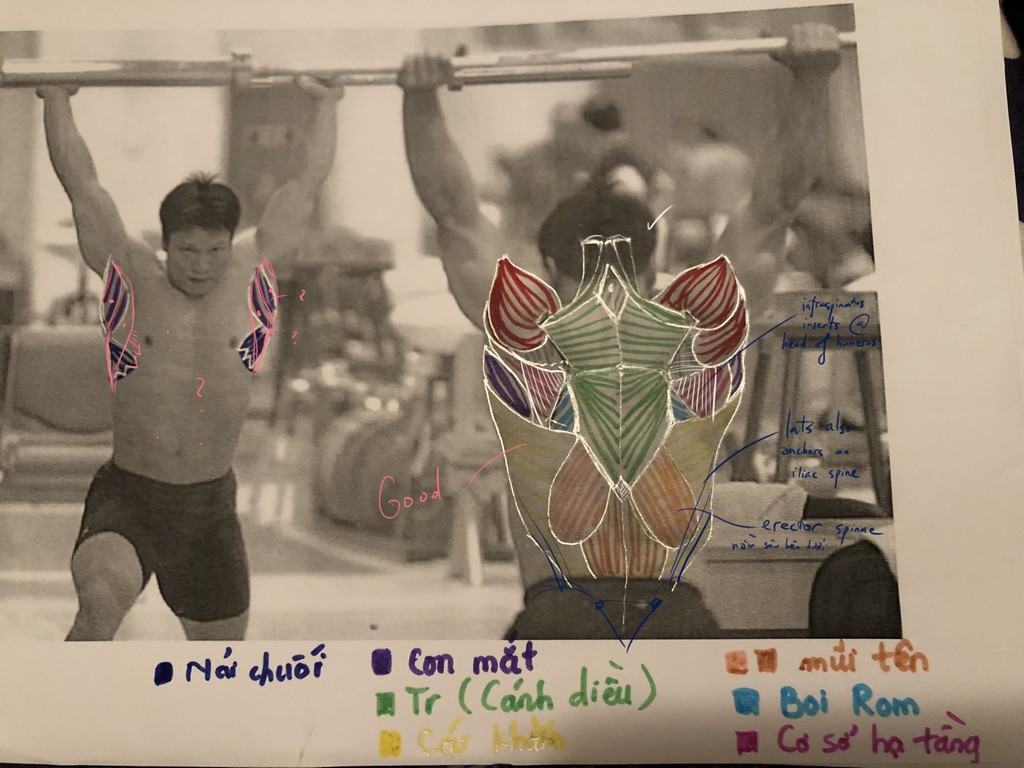 ?
?
?
infraspinatus
inserts @
head of humerus
lats also
anchors on
iliac spine
Good
erector spinae
nằm sâu bên dưới
Nải chuối
Con mắt
mũi tên
Tr (Cánh diều)
Boi Rom
Cơ sở hạ tầng